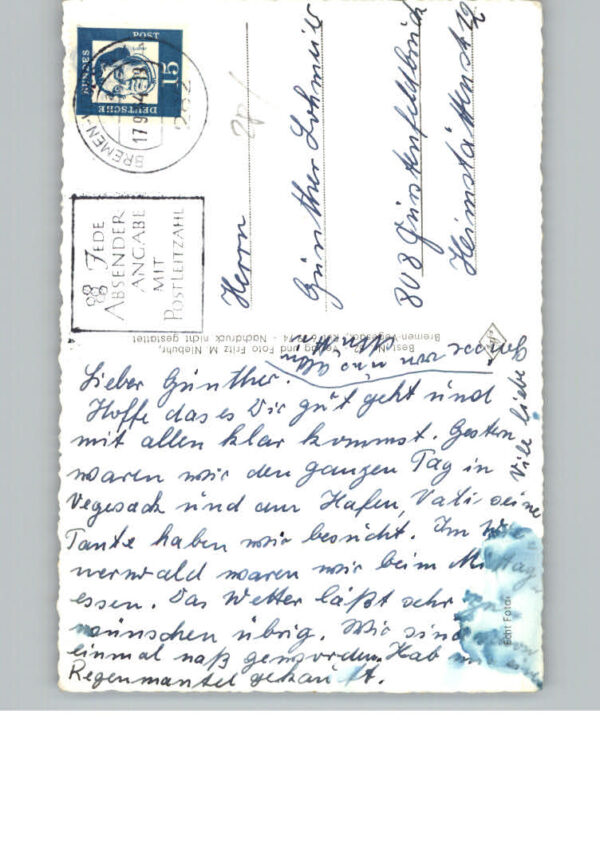 DEUTSCHE
BUNDES
POST
15
BREMEN-
17.9.
282
JEDE
ABSENDER
ANGABE
MIT
POSTLEITZAHL
Herrn
Günther Lohmeier
808 Fürstenfeldbruck
Heimstättenstr
Verlag und Foto Fritz M. Niebuhr,
Bremen-Vegesack, Nachdruck nicht gestattet
Lieber Günther.
Hoffe das es Dir gut geht und
mit allen klar kommst. Gestern
waren wir den ganzen Tag in
Vegesack und am Hafen, Vati seine
Tante haben wir besucht. Im
werwald waren wir beim Mittag
essen. Das Wetter läßt sehr zu
wünschen übrig. Wir sind
einmal naß geworden. Hab
Regenmantel gekauft.
Viele liebe
Grüsse von
Echt Foto